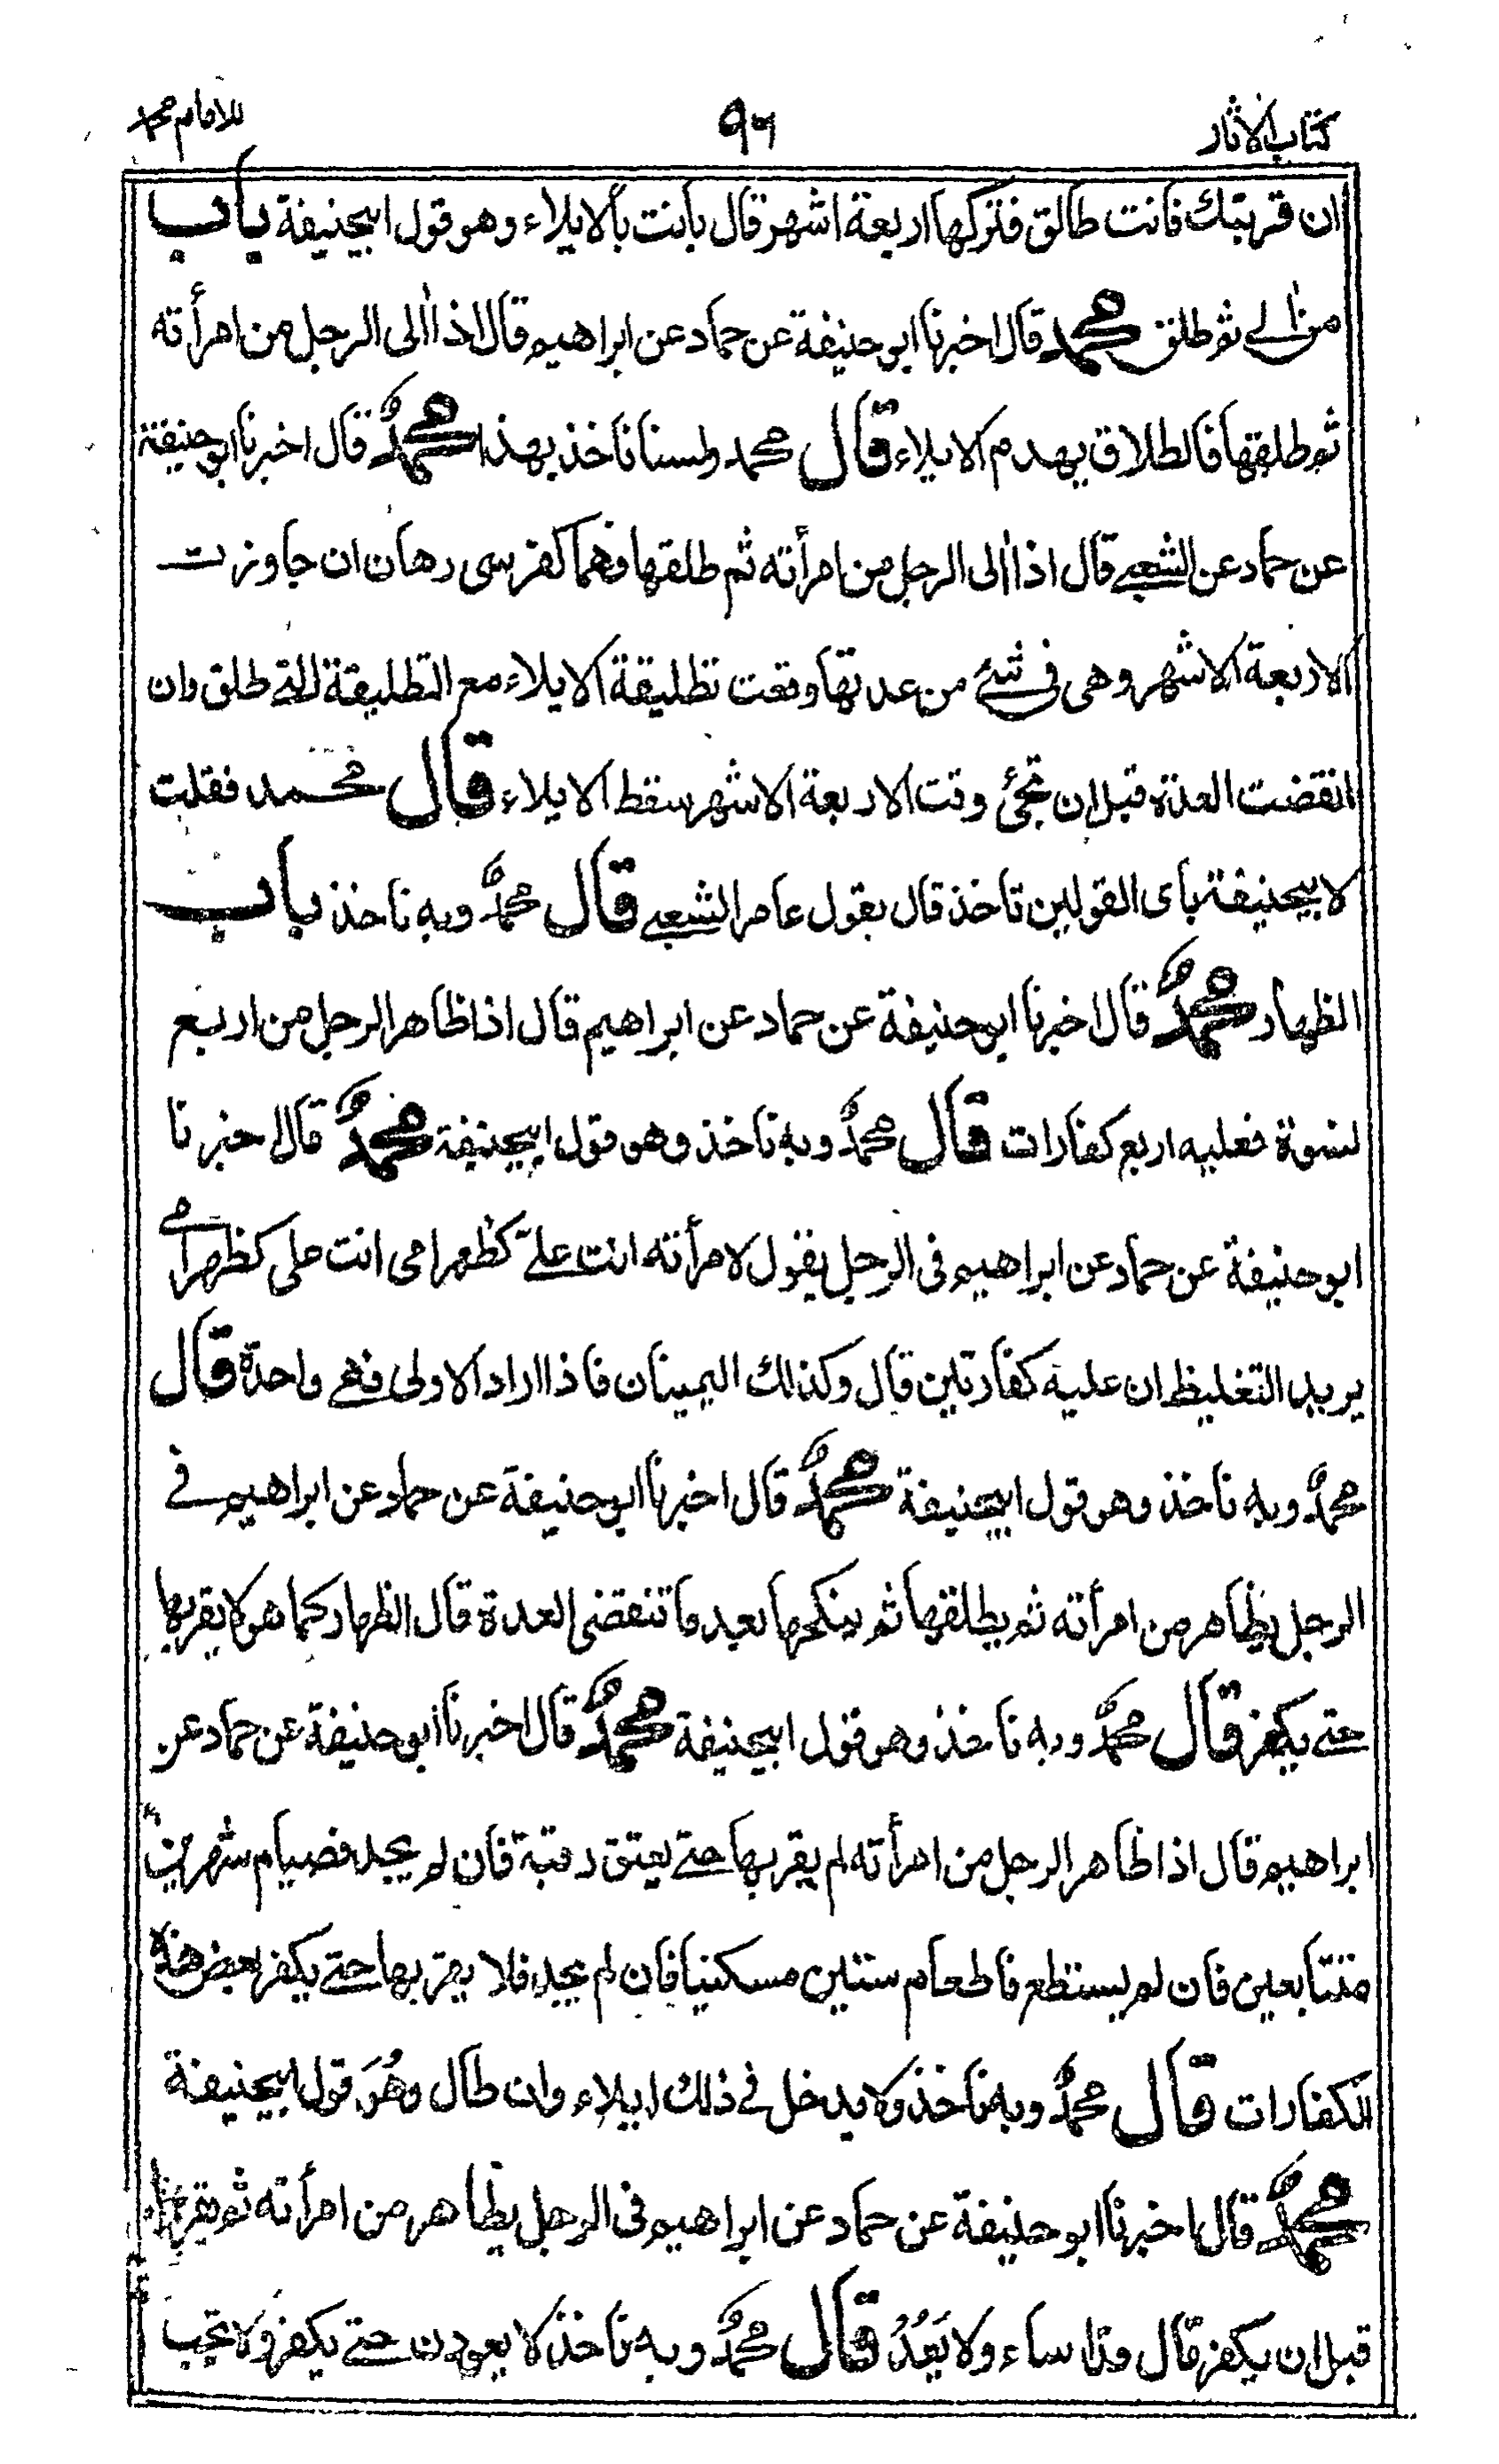 كتاب الاثار ٩٦ للامام محمد
ان قربتك فانت طالق فتركها اربعة اشهر قال بانت بالايلاء وهو قول ابيحنيفة باب
من الى ثم طلق محمد قال اخبرنا ابو حنيفة عن حماد عن ابراهيم قال اذا الى الرجل من امرأته
ثم طلقها فالطلاق يهدم الايلاء قال محمد ولسنا ناخذ بهذا محمد قال اخبرنا ابو حنيفة
عن حماد عن الشعبي قال اذا الى الرجل من امرأته ثم طلقها فهما كفرسى رهان ان جاوزت
الاربعة الاشهر وهى فى شئ من عدتها وقعت تطليقة الايلاء مع التطليقة التي طلق وان
انقضت العدة قبل ان تجئ وقت الاربعة الاشهر سقط الايلاء قال محمد فقلت
لابيحنيفة باى القولين تاخذ قال بقول عامر الشعبي قال محمد وبه ناخذ باب
الظهار محمد قال اخبرنا ابو حنيفة عن حماد عن ابراهيم قال اذا ظاهر الرجل من اربع
نسوة فعليه اربع كفارات قال محمد وبه ناخذ وهو قول ابيحنيفة محمد قال اخبرنا
ابو حنيفة عن حماد عن ابراهيم فى الرجل يقول لامرأته انت عليّ كظهر امى انت على كظهر امي
يريد التغليظ ان عليه كفارتين قال وكذلك اليمينان فاذا اراد الاولى فهي واحدة قال
محمد وبه ناخذ وهو قول ابيحنيفة محمد قال اخبرنا ابو حنيفة عن حماد عن ابراهيم في
الرجل يظاهر من امرأته ثم يطلقها ثم ينكحها بعد ما تنقضى العدة قال الظهار كما هو لا يقربها
حتى يكفر قال محمد وبه ناخذ وهو قول ابيحنيفة محمد قال اخبرنا ابو حنيفة عن حماد عن
ابراهيم قال اذا ظاهر الرجل من امرأته لم يقربها حتى يعتق رقبة فان لم يجد فصيام شهرين
متتابعين فان لم يستطع فاطعام ستين مسكينا فان لم يجد فلا يقربها حتى يكفر بعض هذه
الكفارات قال محمد وبه ناخذ ولا يدخل في ذلك ايلاء وان طال وهُوَ قول ابيحنيفة
محمد قال اخبرنا ابو حنيفة عن حماد عن ابراهيم فى الرجل يظاهر من امرأته ثم يقربها
قبل ان يكفر قال وقد اساء ولا يَعُدْ قال محمد وبه ناخذ لا يعودن حتى يكفر ولا تجب